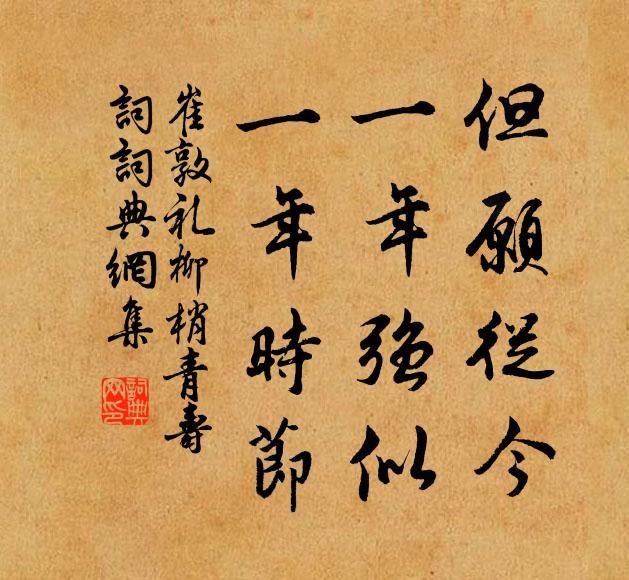 但願從今
一年強似
一年時節
崔敦礼柳梢青壽
詞詞典網集
詞典網印